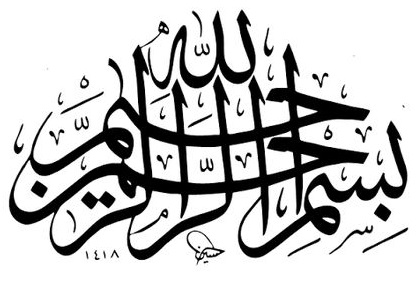 بِسْمِ اللهِ الرَّحْمٰنِ الرَّحِيمِ
١٤١٨